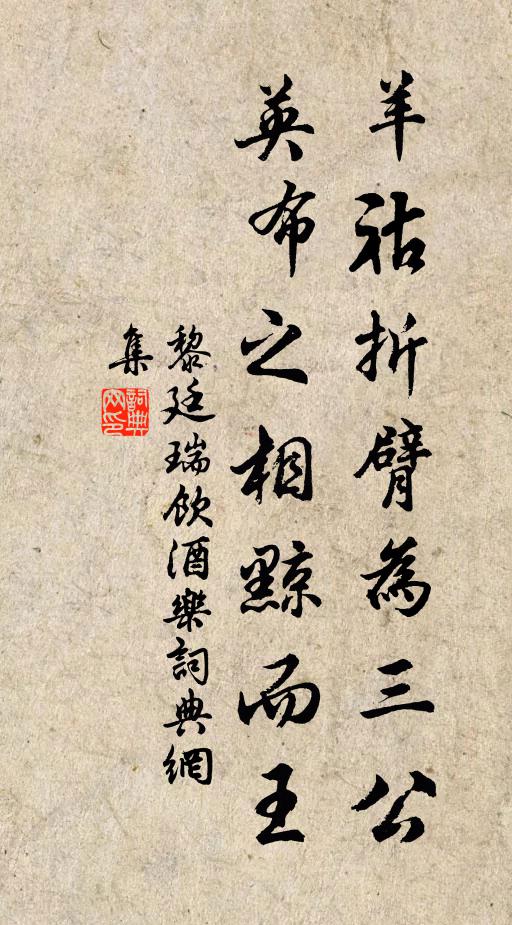 羊祜折臂為三公
英布之相黥而王
黎廷瑞飲酒樂詞典網
集
詞典
网印